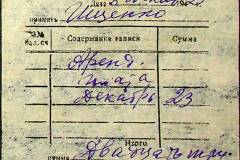 Ищенко
№№ Содержание записи Сумма
Аренд.
плата
Декабрь 23
Итого
сумма Двадцать три